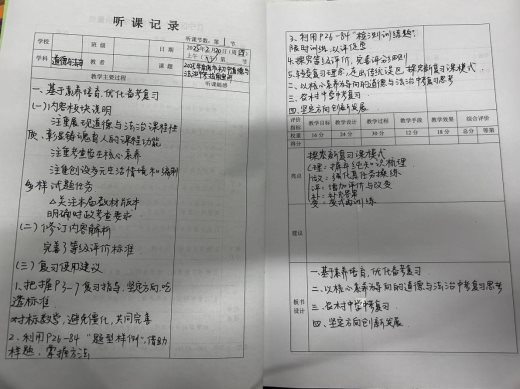 听课记录
听课节数:第 1 节
学校 班级 日期 2025年2月20日(周四)
上午 第 节
学科 道德与法治 教者 课题 2025年 道德与
法治
教学主要过程 听课随感
一、基于素养培育,优化备考复习
(一)内容板块说明
注重展现道德与法治课程性
质,彰显铸魂育人的课程功能
注重考查学生核心素养
注重创设多元生活情境和编制
多样试题任务
△关注本届教材版本
明确时政考查要求
(二)修订内容解析
完善了等级评价标准
(三)复习使用建议
1、把握P3-7复习指导,坚定方向,吃
透标准
对标教学,避免僵化,共同完善
2、利用P26-84“题型样例”,借助
样题,掌握方法
3、利用P26-84“检测训练题”,
限时训练,以评促思
4、探究等级评价,完善评分细则
5、转变复习理念,走出传统误区,探究新复习课模式
二、以核心素养为导向的道德与法治中考复习思考
三、农村中学中考复习
四、坚定方向创新发展
评价指标 教学目标 教学设计 教学过程 教学手段 教学效果 综合评价
权重 16分 24分 30分 12分 18分 总分 等第
得分
亮点
探索新复习课模式
理:
议:强化真任务操练
评:增加评价与改变
补:
变:变式再训练
建议
板书设计
一、基于素养培育,优化备考复习
二、以核心素养为导向的道德与法治中考复习思考
三、农村中学中考复习
四、坚定方向创新发展